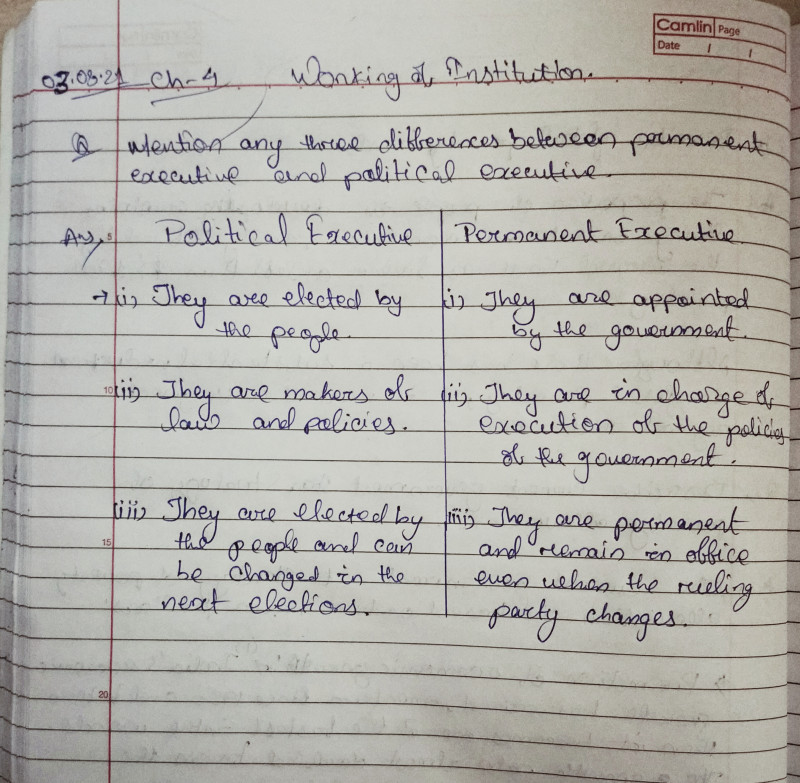 Camlin Page
Date / /
03.03.21 Ch-4 Working of Institution.
Q Mention any three differences between permanent
executive and political executive.
Ans, 5 Political Executive Permanent Executive
→ (i) They are elected by (i) They are appointed
the people. by the government.
10 (ii) They are makers of (ii) They are in charge of
law and policies. execution of the policies
of the government.
(iii) They are elected by (iii) They are permanent
15 the people and can and remain in office
be changed in the even when the rueling
next elections. party changes.
20